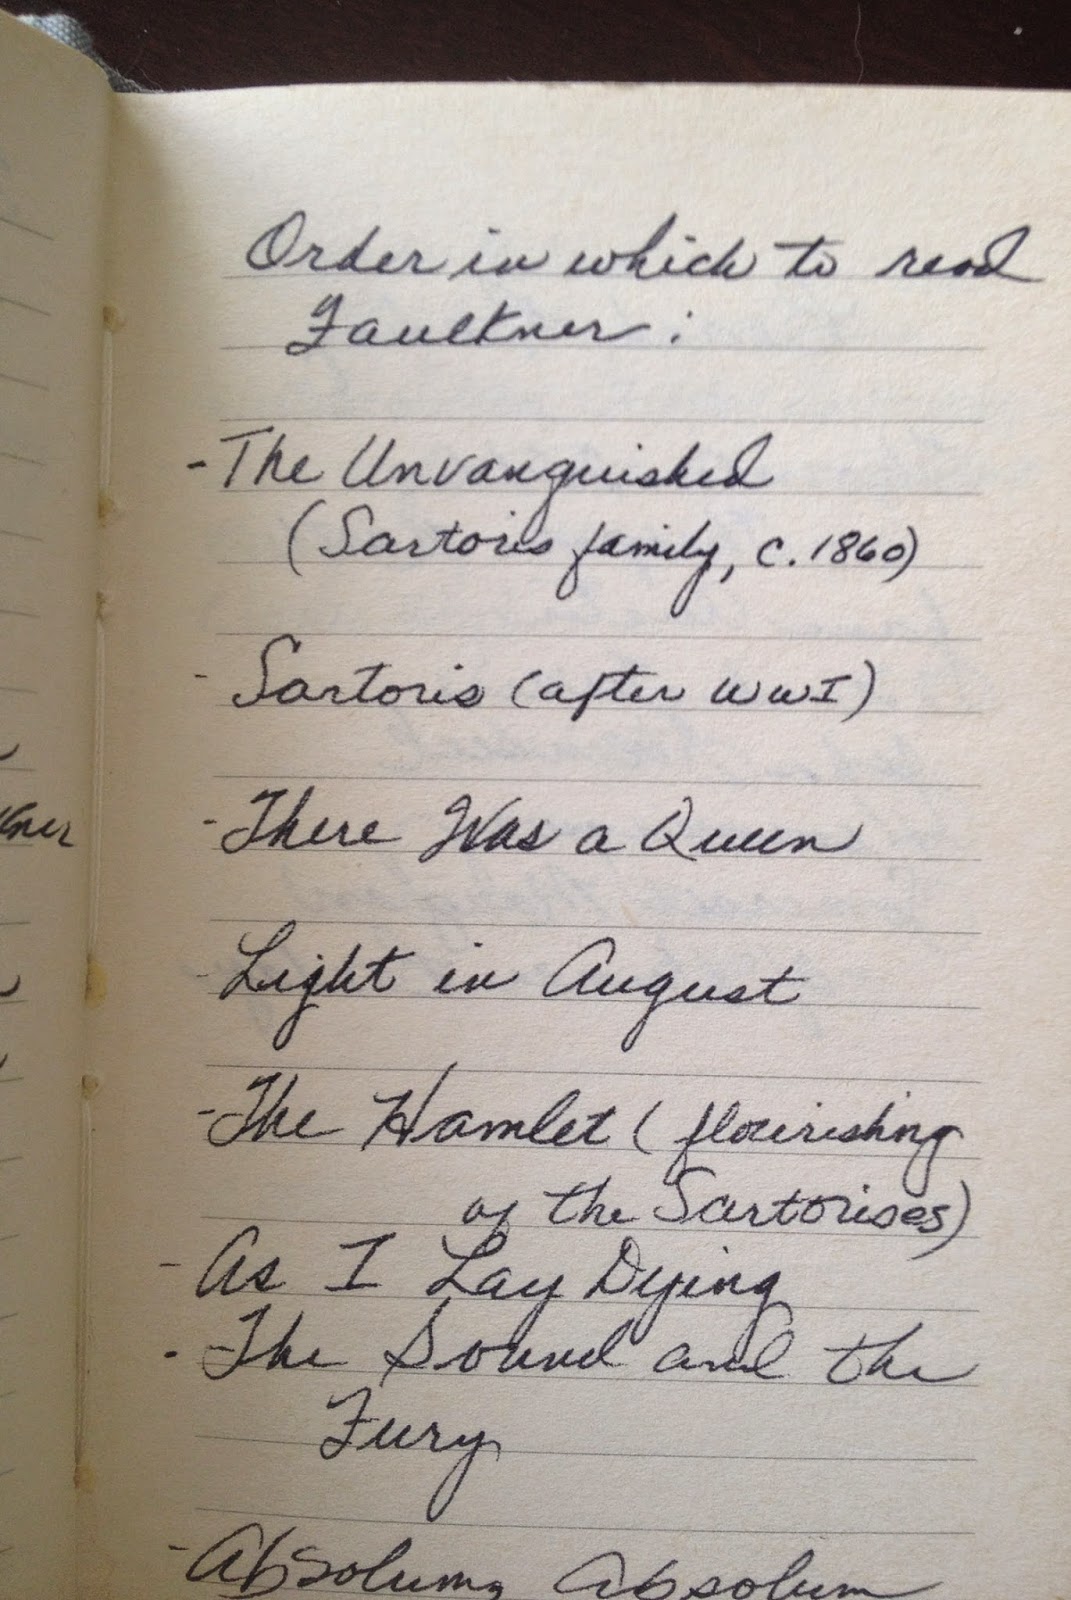 Order in which to read
Faulkner:
- The Unvanquished
(Sartoris family, c. 1860)
- Sartoris (after WWI)
- There Was a Queen
- Light in August
- The Hamlet (flourishing
of the Sartorises)
- As I Lay Dying
- The Sound and the
Fury
- Absolum, Absolum